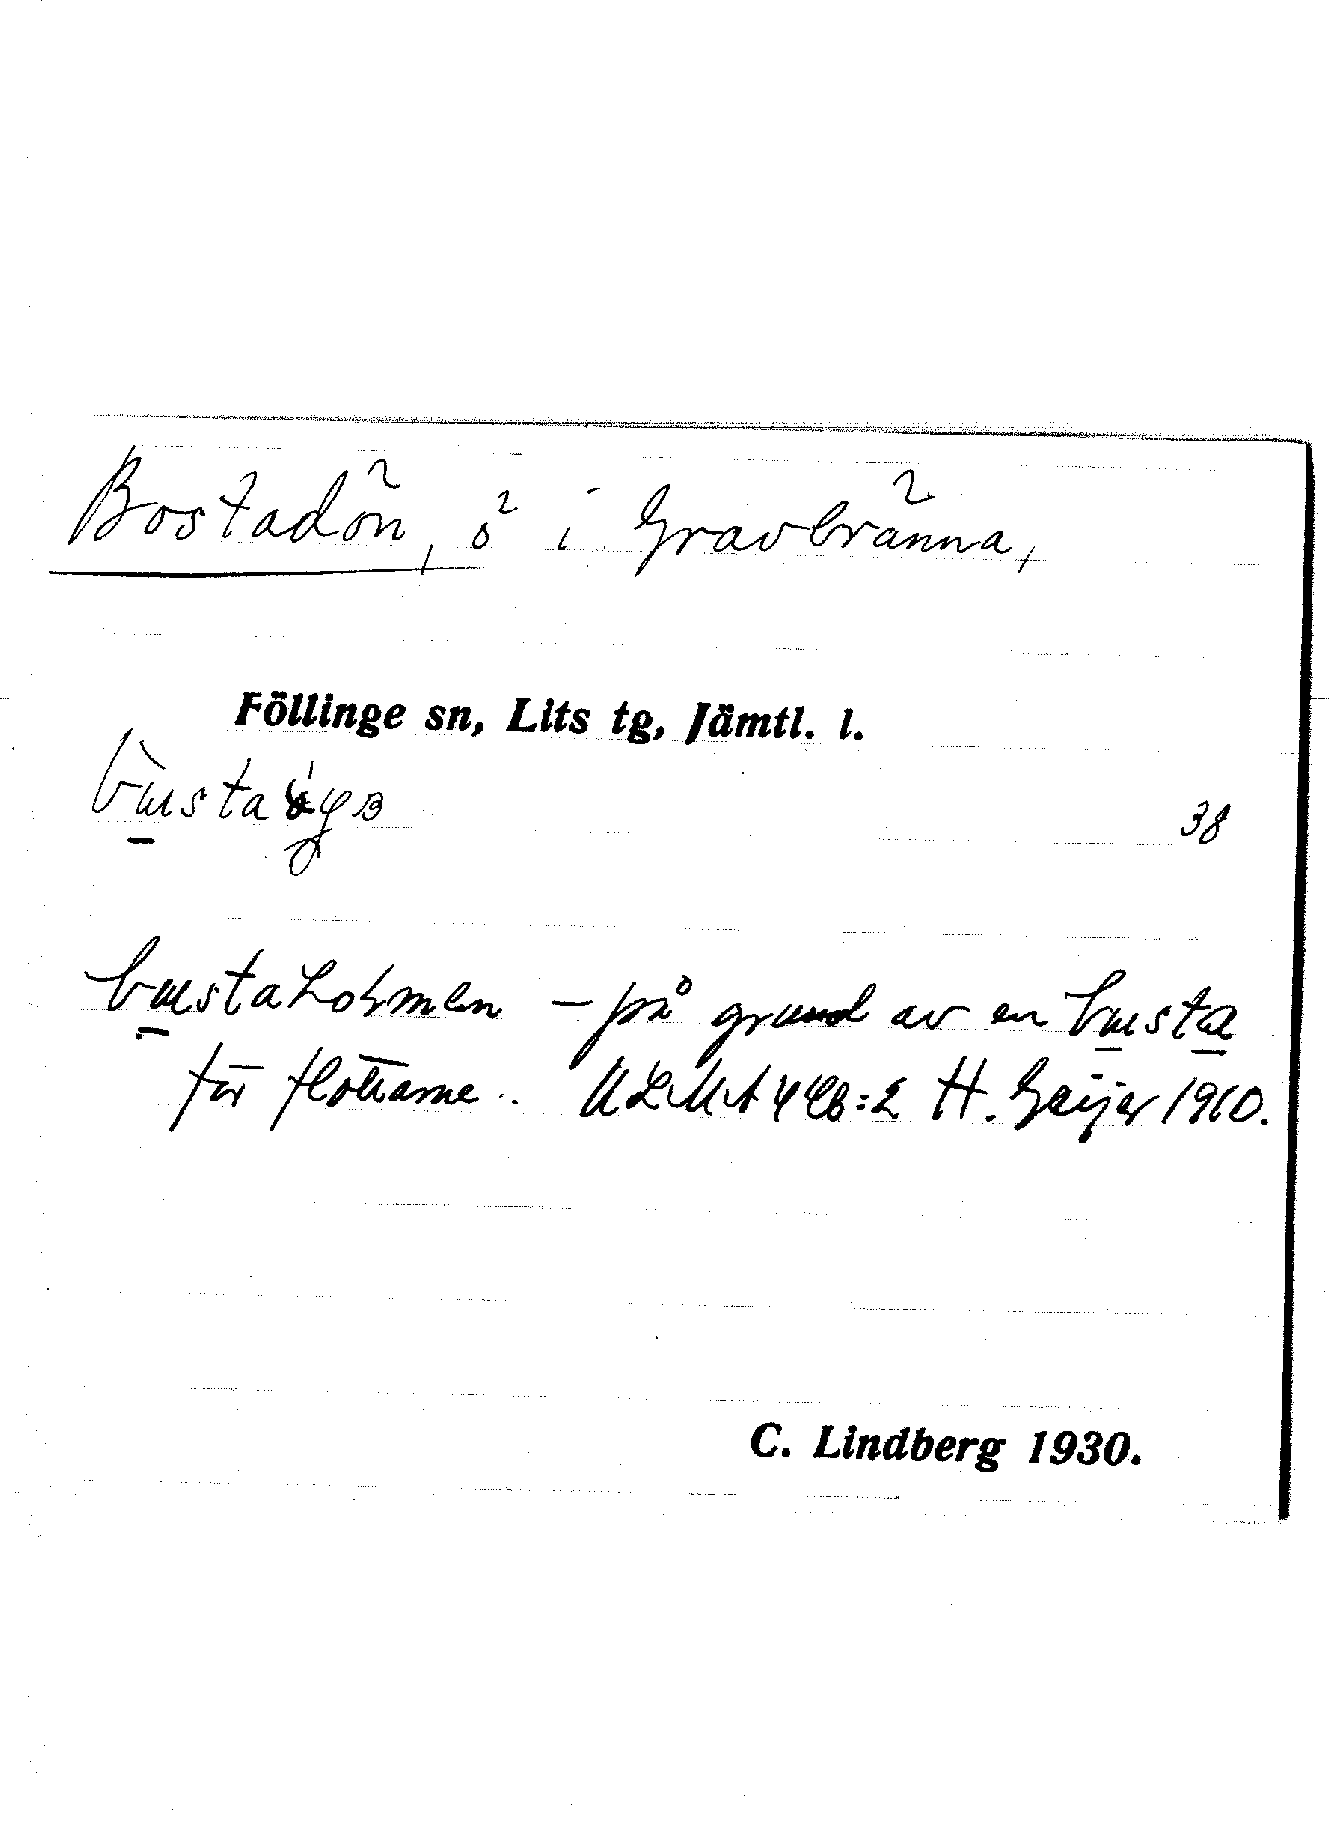 Bostadön, ö i Gravbränna,
Föllinge sn, Lits tg, Jämtl. l.
38
bustaholmen – på grund av en busta
för flottarne. ULMA 448:2 H. Geijer 1910.
C. Lindberg 1930.